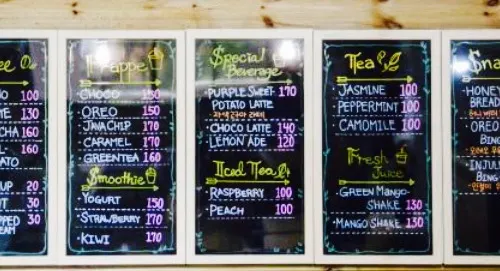 ee
100
130
CHA 160
160
ATO
UP 20
30
PPED 30
EAM
Frappe
CHOCO 150
OREO 150
JAVA CHIP 170
CARAMEL 170
GREENTEA 160
Smoothie
YOGURT 150
STRAWBERRY 170
KIWI 170
Special
Beverage
PURPLE SWEET 170
POTATO LATTE
자색고구마 라떼
CHOCO LATTE 140
LEMON ADE 120
Iced Tea
RASPBERRY 100
PEACH 100
Tea
JASMINE 100
PEPPERMINT 100
CAMOMILE 100
Fresh
Juice
GREEN Mango
SHAKE 130
MANGO SHAKE 130
Sna
HONEY
BREAD
OREO
BING
INJUL
BING